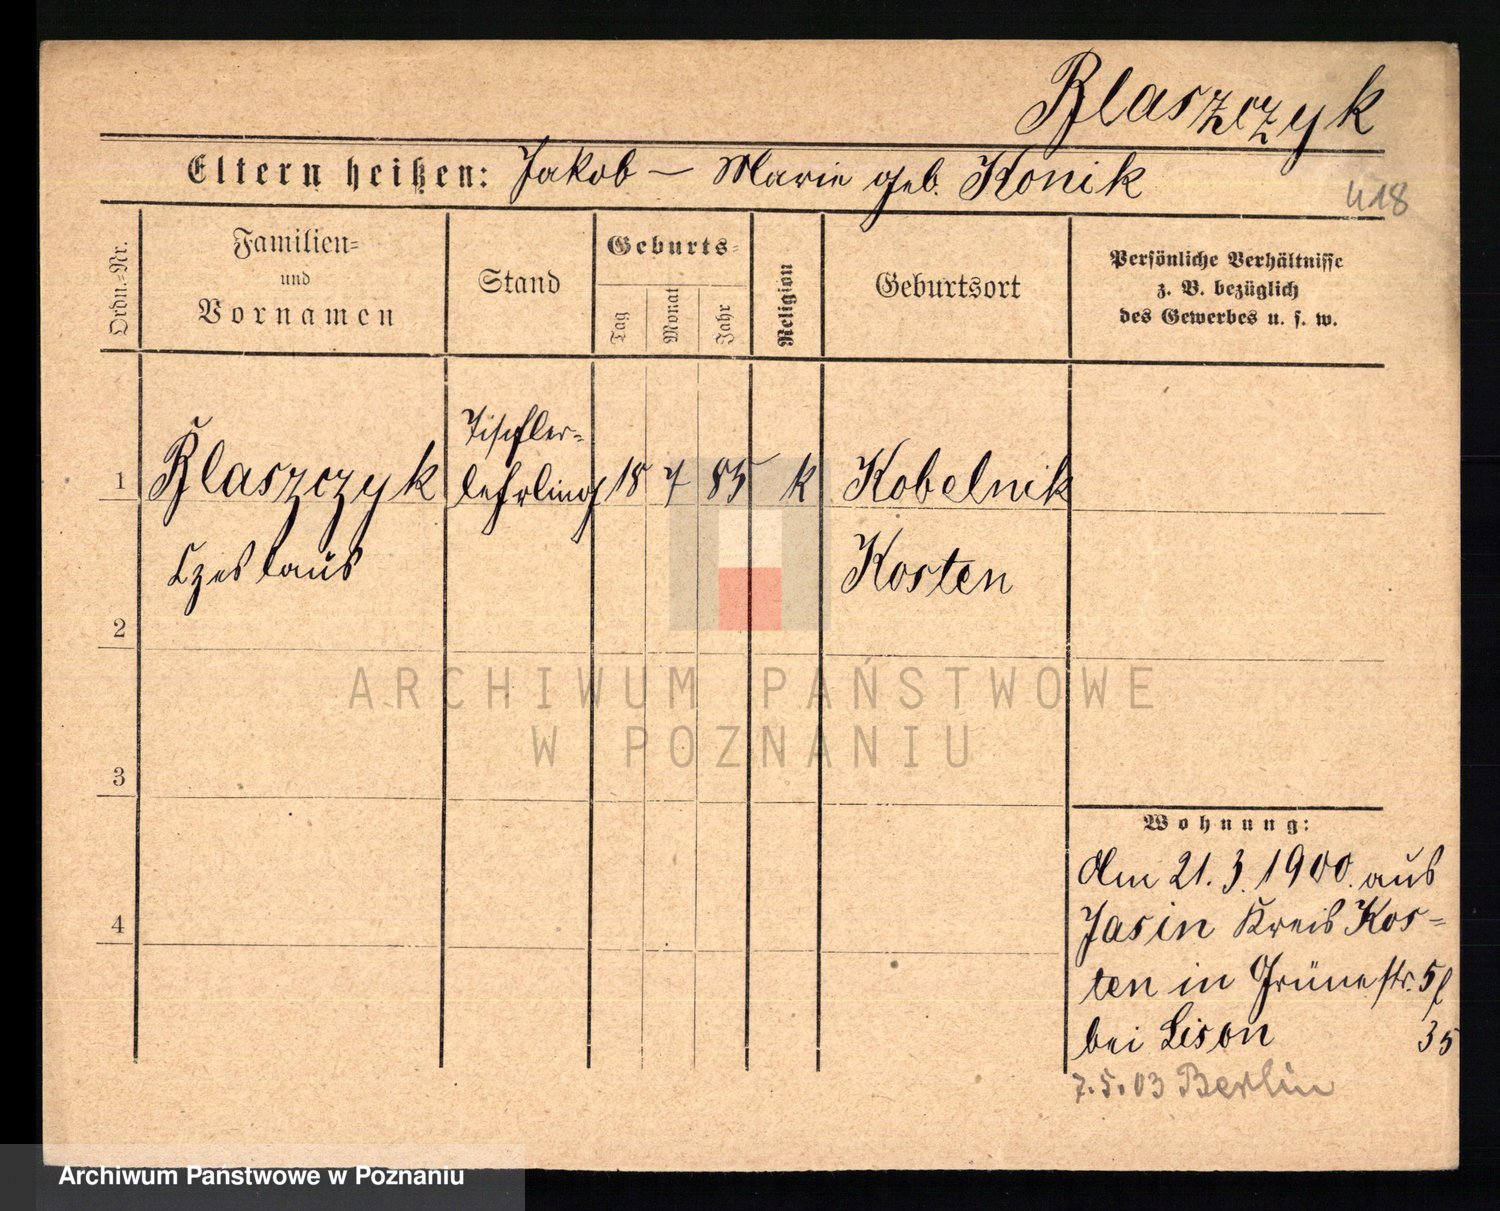 Blaszczyk
Eltern heißen: Jakob — Marie geb. Konik
418
Ordn.-Nr.
Familien-
und
Vornamen
Stand
Geburts-
Tag
Monat
Jahr
Religion
Geburtsort
Persönliche Verhältnisse
z. B. bezüglich
des Gewerbes u. s. w.
Tischler-
1 Blaszczyk lehrling 18 7 85 k Kobelnik
Czeslaus Kosten
2
ARCHIWUM PAŃSTWOWE
W POZNANIU
3
Wohnung:
Am 21.3.1900. aus
4
Jasin Kreis Kos-
ten in Grünestr. 5
bei Lison 35
7.5.03 Berlin
Archiwum Państwowe w Poznaniu